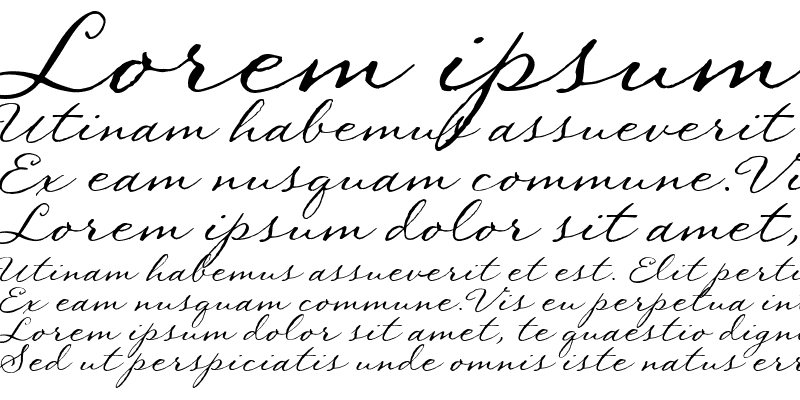 Lorem ipsum
Utinam habemus assueverit
Ex eam nusquam commune.Vi
Lorem ipsum dolor sit amet,
Utinam habemus assueverit et est. Elit pertu
Ex eam nusquam commune.Vis eu perpetua in
Lorem ipsum dolor sit amet, te quaestio dign
Sed ut perspiciatis unde omnis iste natus err